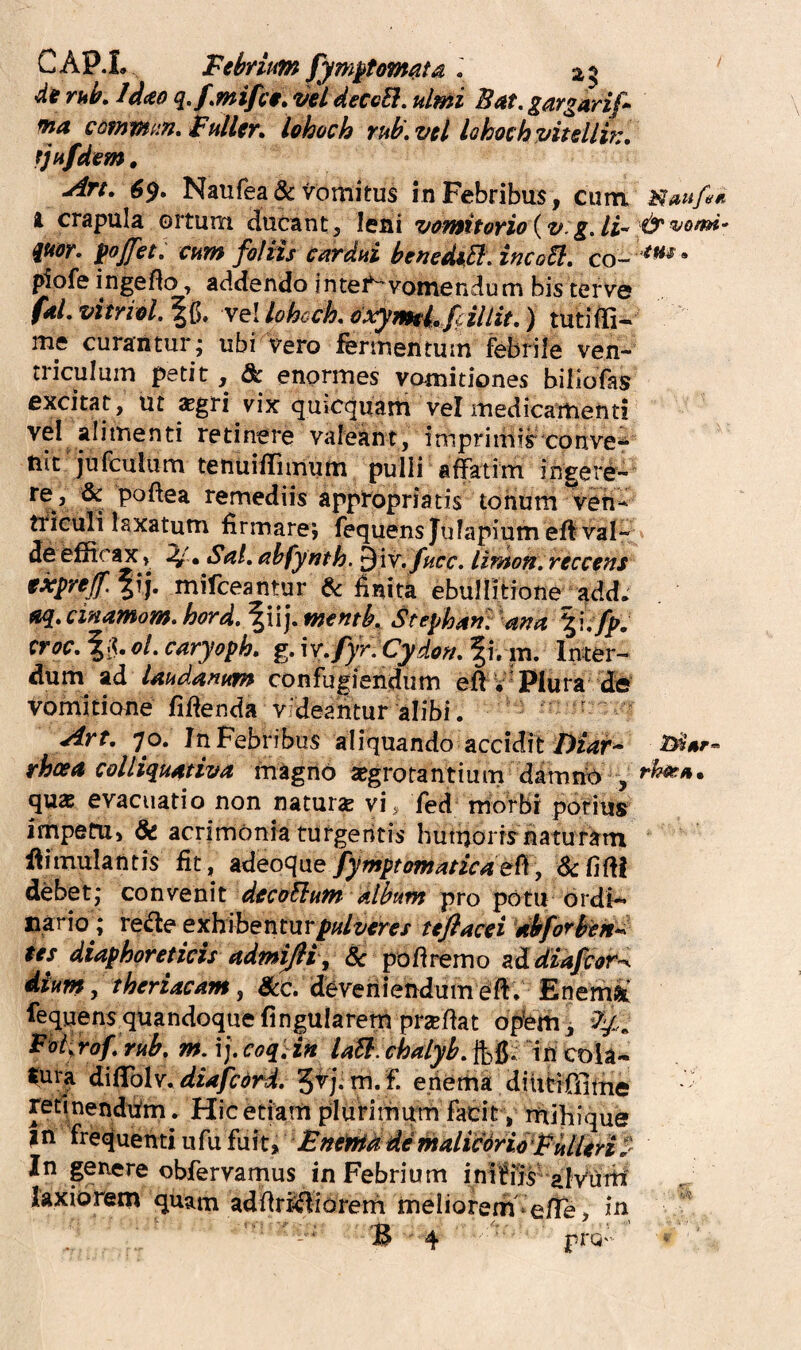 CAP.I. Febrium ſymptomata . 23
de rub. Idæo q.ſ.miſce. vel decoct. ulmi Bat. gargariſ-
ma commun. Fuller. lohoch rub. vel lohoch vitellin.
ejuſdem.
Art. 69. Nauſea & vomitus in Febribus, cum Nauſea
à crapula ortum ducant, leni vomitorio ( v. g. li- & vomi-
quor. poſſet. cum foliis cardui benedict. incoct. co- tus.
pioſe ingeſto, addendo inter vomendum bis terve
ſal. vitriol. ℥ß. vel lohoch. oxymel. ſcillit. ) tutiſſi-
me curantur; ubi vero fermentum febrile ven-
triculum petit , & enormes vomitiones bilioſas
excitat, ut ægri vix quicquam vel medicamenti
vel alimenti retinere valeant, imprimis conve-
nit juſculum tenuiſſimum pulli affatim ingere-
re, & poſtea remediis appropriatis tonum ven-
triculi laxatum firmare; ſequens Julapium eſt val-
de efficax, ♃. Sal. abſynth. ℈iv. ſucc. limon. reccens
expreſſ. ℥ij. miſceantur & finita ebullitione add.
aq. cinamom. hord. ℥iij. menth. Stephan. ana ℥i. ſp.
croc. ℥ß. ol. caryoph. g. iv. ſyr. Cydon. ℥i. m. Inter-
dum ad laudanum confugiendum eſt . Plura de
vomitione ſiſtenda videantur alibi.
Art. 70. In Febribus aliquando accidit Diar- Diar-
rhœa colliquativa magno ægrotantium damno , rhœa.
quæ evacuatio non naturæ vi, ſed morbi potius
impetu, & acrimonia turgentis humoris naturam
ſtimulantis fit, adeoque ſymptomatica eſt, & ſiſti
debet; convenit decoctum album pro potu ordi-
nario ; recte exhibentur pulveres teſtacei abſorben-
tes diaphoreticis admiſti, & poſtremo ad diaſcor-
dium, theriacam, &c. deveniendum eſt. Enema
ſequens quandoque ſingularem præſtat opem, ♃.
Fol. roſ. rub. m. ij. coq. in lact. chalyb. ℔ß. in cola-
tura diſſolv. diaſcord. ʒvj. m. f. enema diutiſſime
retinendum. Hic etiam plurimum facit, mihique
in frequenti uſu fuit, Enema de malicorio Fulleri.
In genere obſervamus in Febrium initiis alvum
laxiorem quam adſtrictiorem meliorem eſſe, in
B 4 pro-